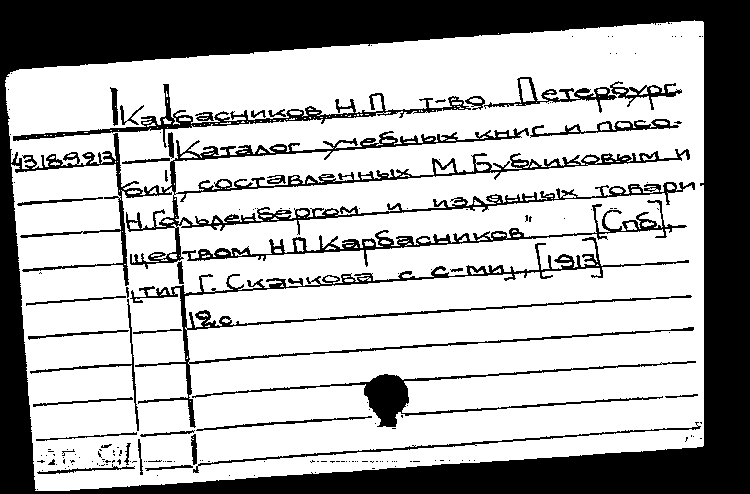 Карбасников, Н.П., т-во. Петербург.
43.18.9.213 Каталог учебных книг и посо-
бий, составленных М.Бубликовым и
Н.Гольденбергом и изданных товари-
ществом „Н.П.Карбасников“ [Спб],
тип. Г. Скачкова с с-ми, [1913]
12с.